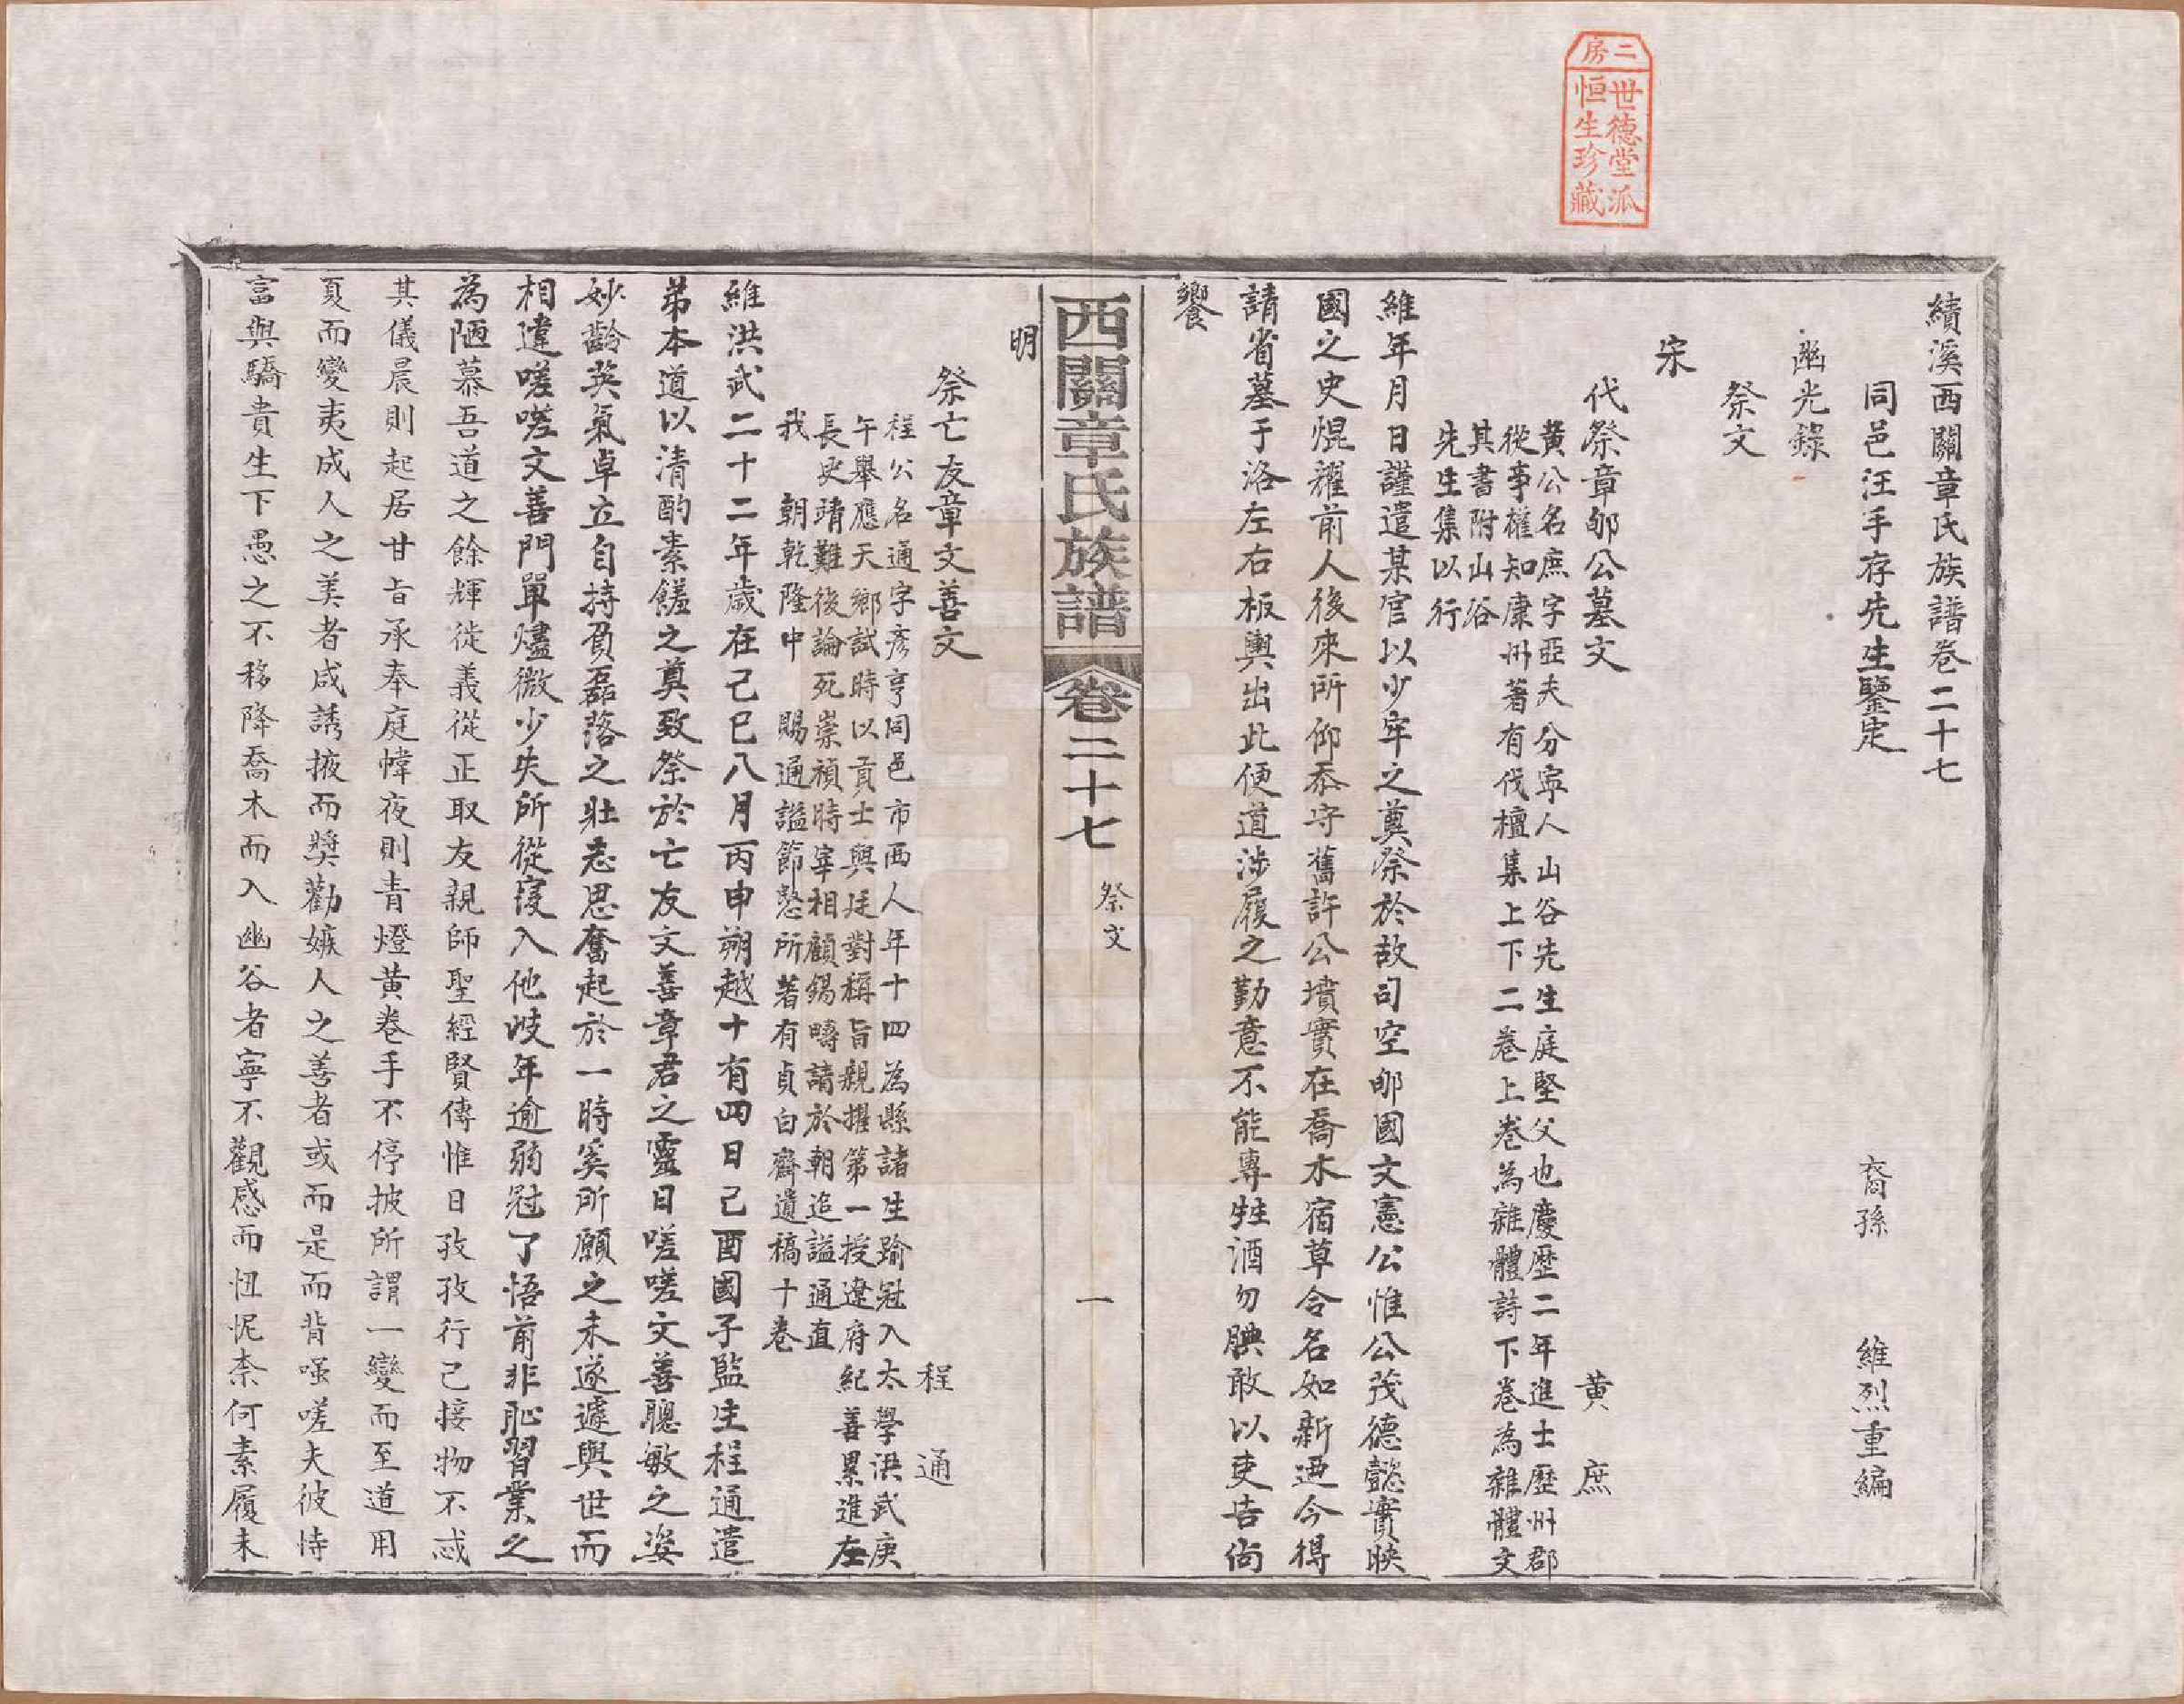 二房
世德堂派
恒生珍藏
績溪西關章氏族譜卷二十七
同邑汪手存先生鑒定　裔孫　維烈重編
幽光錄
祭文
宋
代祭章郇公墓文　黃庶
黃公名庶字亞夫分寧人山谷先生庭堅父也慶歷二年進士歷州郡
從事權知康州著有伐檀集上下二卷上卷為雜體詩下卷為雜體文
其書附山谷
先生集以行
維年月日謹遣某官以少牢之奠祭於故司空郇國文憲公惟公茂德懿實映
國之史焜耀前人後來所仰忝守舊許公墳實在喬木宿草令名如新迺今得
請省墓于洛左右板輿出此便道涉履之勤意不能專牲酒勿腆敢以吏告尚
饗
西關章氏族譜　卷二十七　祭文　一
明
祭亡友章文善文　程通
程公名通字彥亨同邑市西人年十四為縣諸生踰冠入太學洪武庚
午舉應天鄉試時以貢士與廷對稱旨親擢第一授遼府紀善累進左
長史靖難後論死崇禎時宰相顧錫疇請於朝追謚通直
我　朝乾隆中　賜通謚節愍所著有貞白齋遺稿十卷
維洪武二十二年歲在己巳八月丙申朔越十有四日己酉國子監生程通遣
弟本道以清酌素饈之奠致祭於亡友文善章君之靈曰嗟嗟文善聰敏之姿
妙齡英氣卓立自持負磊落之壯志思奮起於一時奚所願之未遂遽與世而
相違嗟嗟文善門單燼微少失所從寖入他歧年逾弱冠了悟前非恥習業之
為陋慕吾道之餘輝徙義從正取友親師聖經賢傳惟日孜孜行己接物不忒
其儀晨則起居甘旨承奉庭幃夜則青燈黃卷手不停披所謂一變而至道用
夏而變夷成人之美者咸誘掖而獎勸嫉人之善者或而是而背嗤嗟夫彼恃
富與驕貴生下愚之不移降喬木而入幽谷者寧不觀感而忸怩柰何素履未